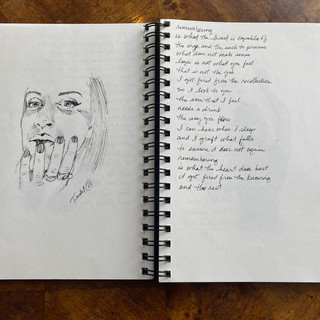 remembering
is what the heart is capable of
the urge and the such to process
what does not make sense
logic is not what you feel
that is not the job
I get fired from the recollection
so I look to you
the sum that I feel
needs a drink
the way you flow
I can hear when I sleep
and I graft what falls
to ensure it does not again
remembering
is what the heart does best
it got fired from the knowing
and the rest